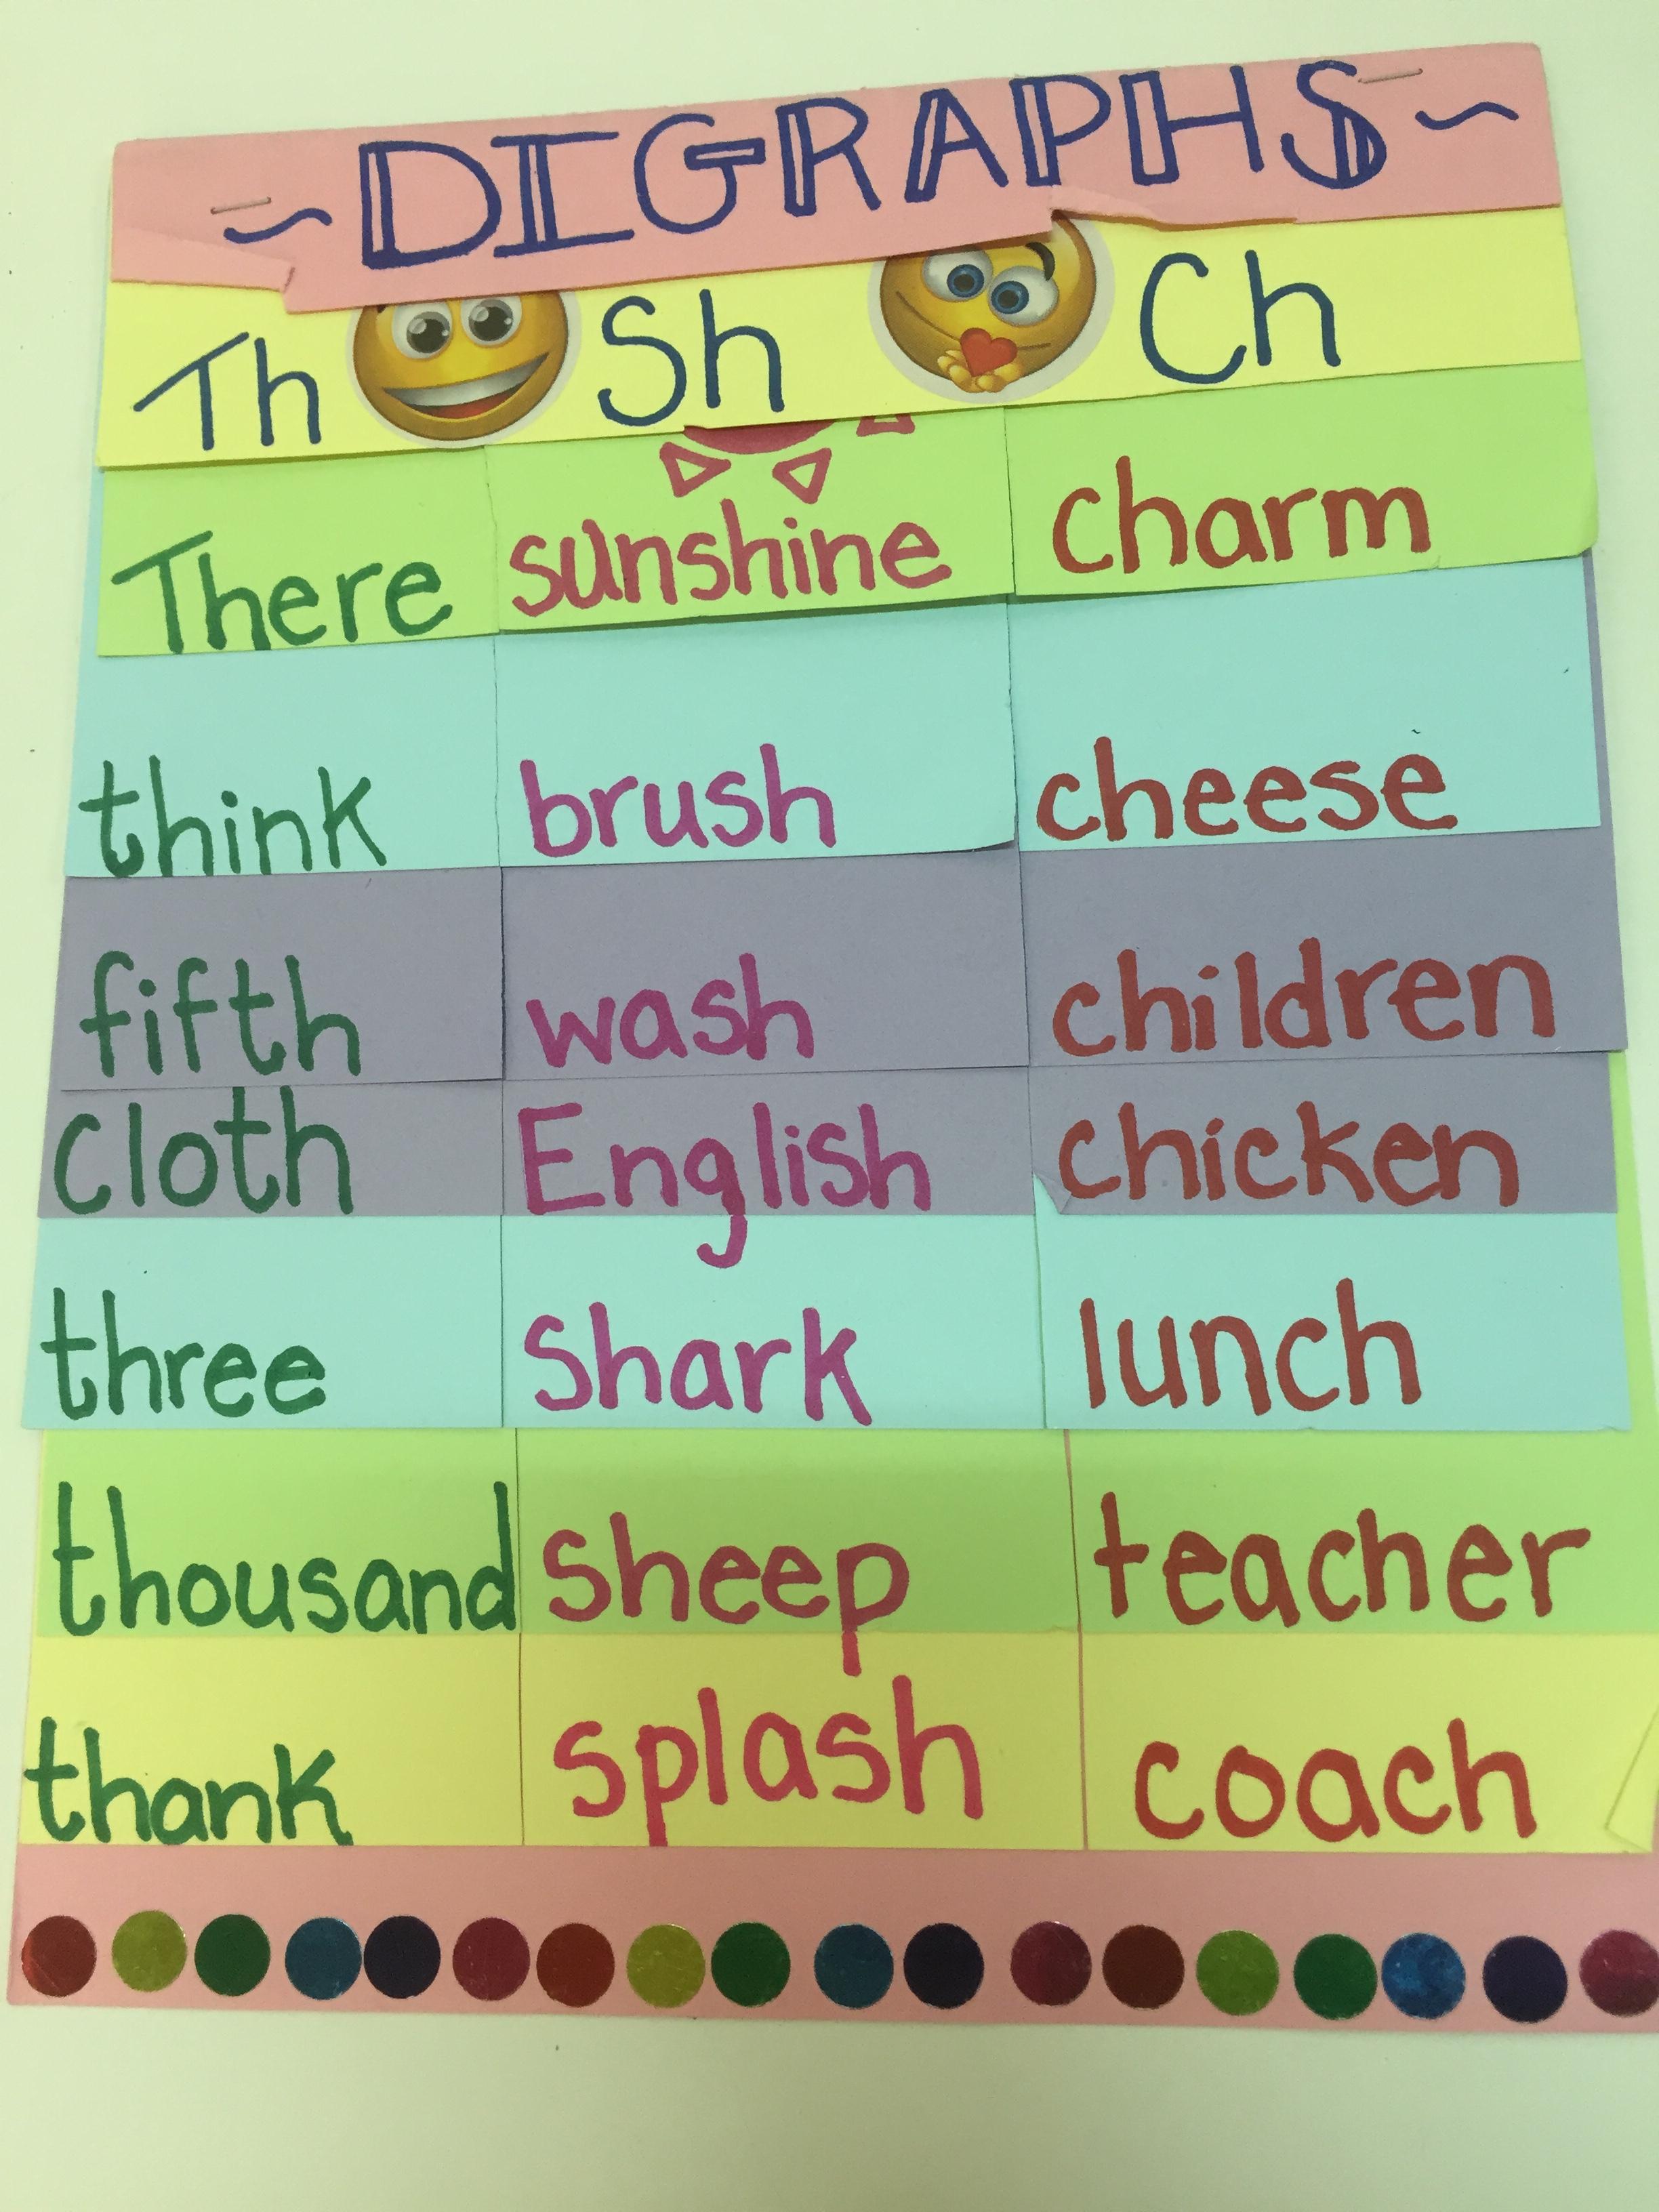 ~DIGRAPHS~
Th Sh Ch
There sunshine charm
think brush cheese
fifth wash children
cloth English chicken
three shark lunch
thousand sheep teacher
thank splash coach